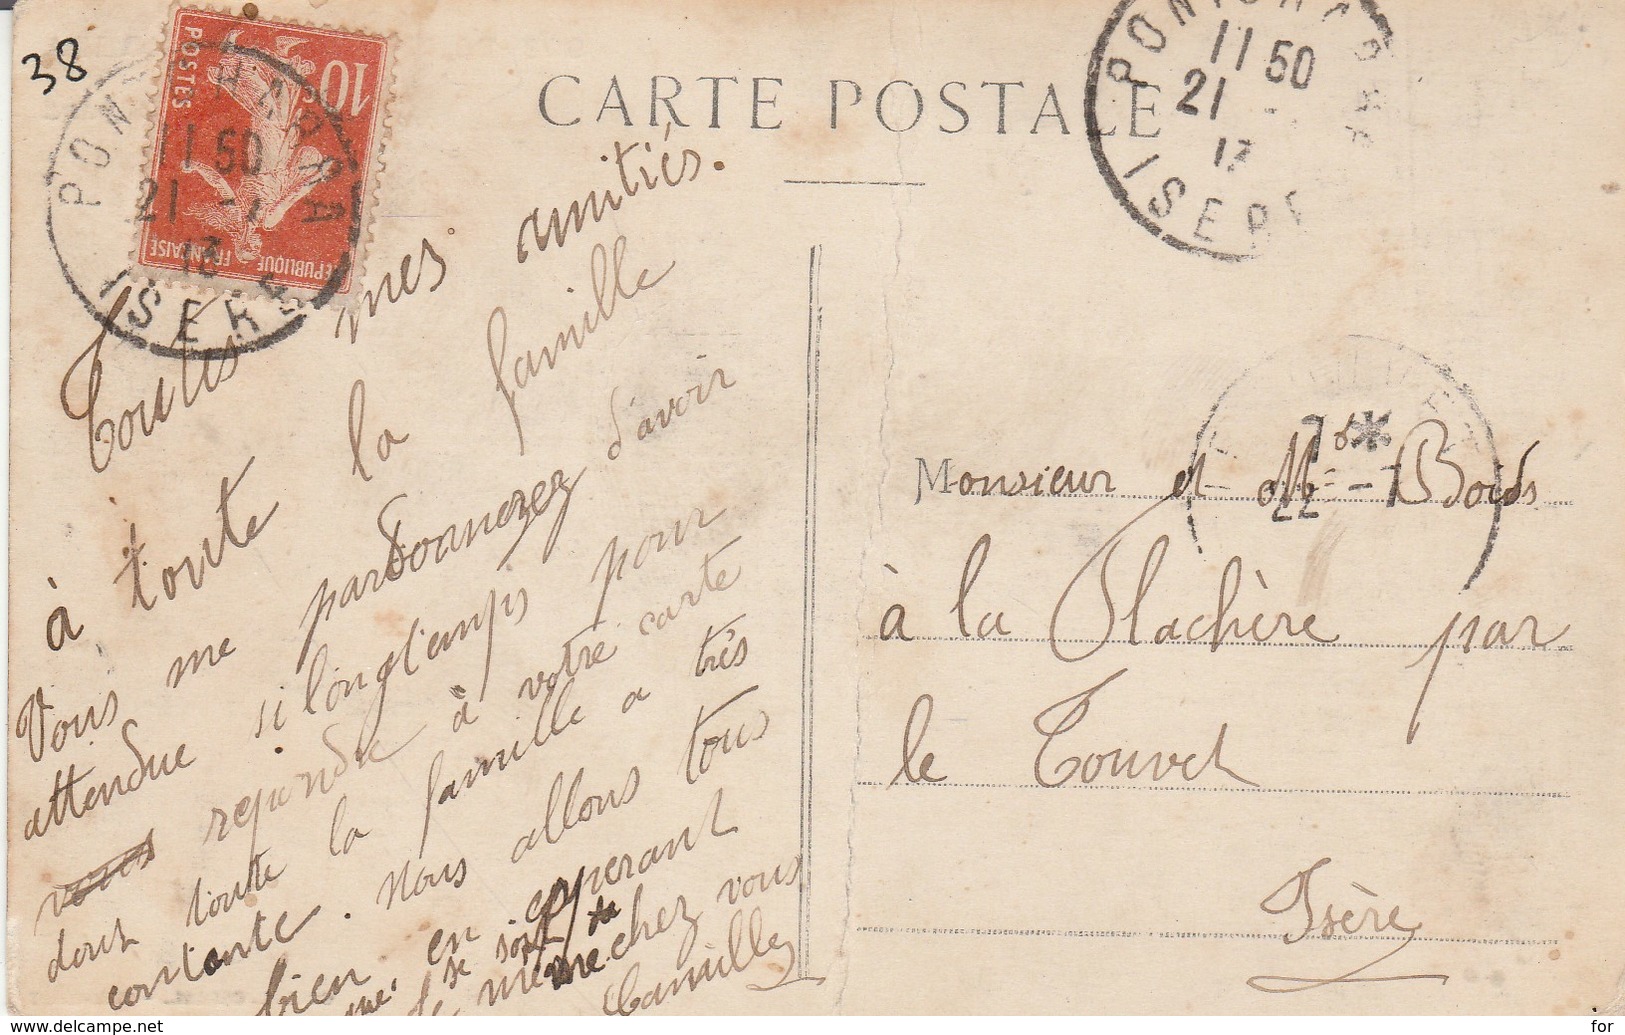 38
CARTE POSTALE
10
POSTES
REPUBLIQUE FRANCAISE
PONTCHARRA
11 50
21 -1
13
ISERE
PONTCHARRA
11 50
21 -
13
ISERE
7 *
22 -1
Toutes mes amitiés.
à toute la famille
Vous me pardonnerez d'avoir
attendue si longtemps pour
vous repondre à votre carte
dont toute la famille a très
contante. Nous allons tous
bien en esperant
que se soit de
même chez vous
Camille
Monsieur et Mme Bois
à la Flachère par
le Touvet
Isère
www.delcampe.net
for